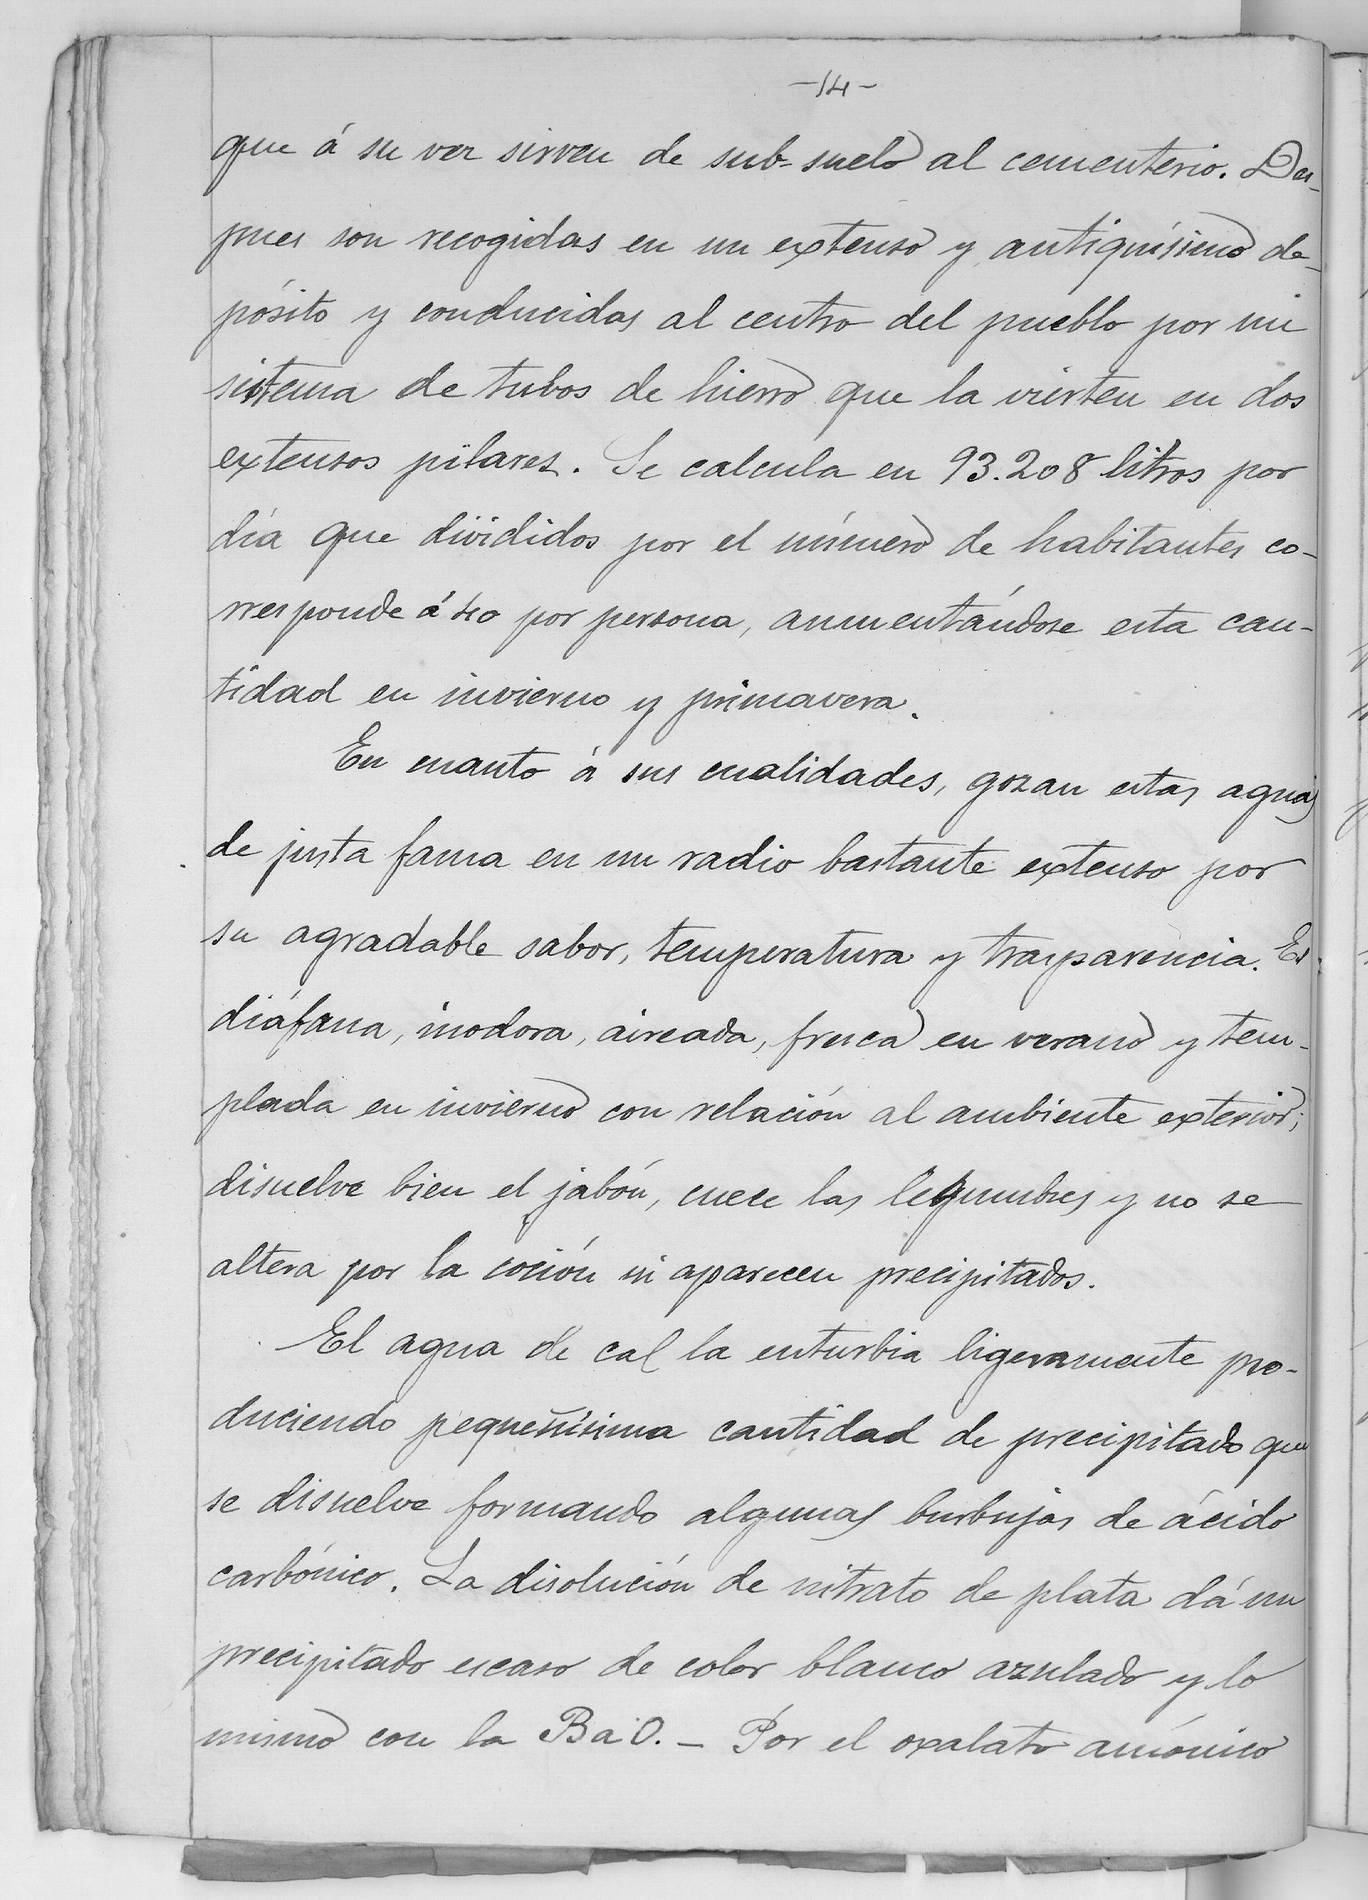 -14-
que á su vez sirven de sub-suelo al cementerio. Des-
pues son recogidas en un extenso y antiquísimo de-
pósito y conducidas al centro del pueblo por un
sistema de tubos de hierro que la vierten en dos
extensos pilares. Se calcula en 93.208 litros por
día que divididos por el número de habitantes co-
rresponde á 40 por persona, aumentándose esta can-
tidad en invierno y primavera.
En cuanto á sus cualidades, gozan estas aguas
de justa fama en un radio bastante extenso por
su agradable sabor, temperatura y trasparencia. Es
diáfana, inodora, aireada, fresca en verano y tem-
plada en invierno con relación al ambiente exterior;
disuelve bien el jabón, cuece las legumbres y no se
altera por la coción ni aparecen precipitados.
El agua de cal la enturbia ligeramente pro-
duciendo pequeñísima cantidad de precipitado que
se disuelve formando algunas burbujas de ácido
carbónico. La disolución de nitrato de plata dá un
precipitado escaso de color blanco azulado y lo
mismo con la BaO. - Por el oxalato amónico